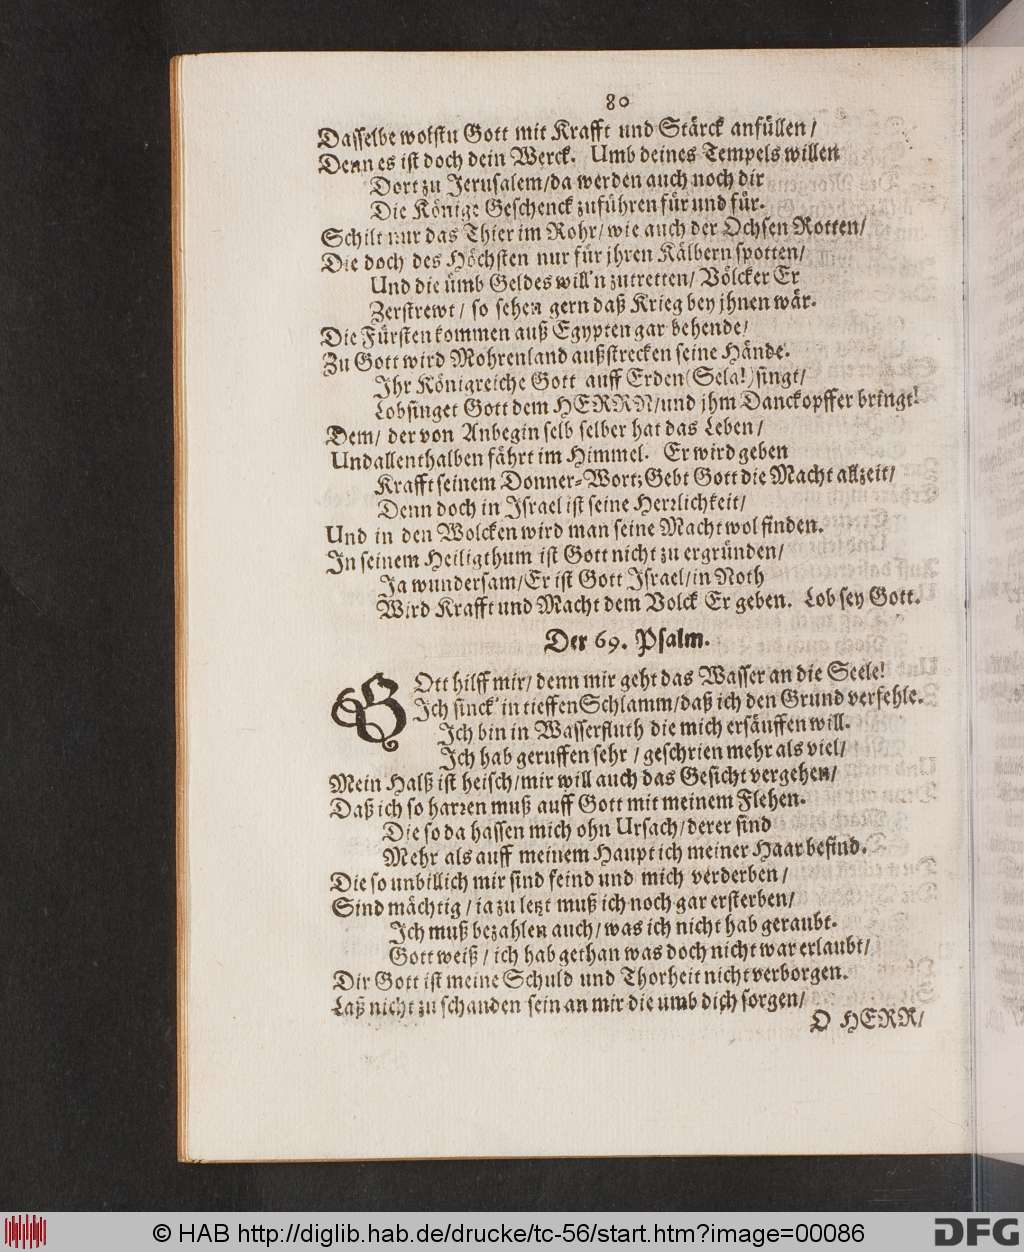 80
Dasselbe wolstu Gott mit Krafft und Stärck anfüllen /
Denn es ist doch dein Werck. Umb deines Tempels willen
Dort zu Jerusalem/ da werden auch noch dir
Die Könige Geschenck zuführen für und für.
Schilt nur das Thier im Rohr/ wie auch der Ochsen Rotten/
Die doch des Höchsten nur für jhren Kälbern spotten/
Und die ümb Geldes will'n zutretten/ Völcker Er
Zerstrewt / so sehen gern daß Krieg bey jhnen wär.
Die Fürsten kommen auß Egypten gar behende/
Zu Gott wird Mohrenland außstrecken seine Hände.
Ihr Königreiche Gott auff Erden (Sela!) singt/
Lobsinget Gott dem HERRN/ und jhm Danckopffer bringt!
Dem/ der von Anbegin selb selber hat das Leben/
Und allenthalben fährt im Himmel. Er wird geben
Krafft seinem Donner-Wort; Gebt Gott die Macht allzeit/
Denn doch in Israel ist seine Herrlichkeit/
Und in den Wolcken wird man seine Macht wol finden.
In seinem Heiligthum ist Gott nicht zu ergründen/
Ja wundersam/ Er ist Gott Israel/ in Noth
Wird Krafft und Macht dem Volck Er geben. Lob sey Gott.
Der 69. Psalm.
GOtt hilff mir/ denn mir geht das Wasser an die Seele!
Ich sinck' in tieffen Schlamm/ daß ich den Grund verfehle.
Ich bin in Wasserfluth die mich ersäuffen will.
Ich hab geruffen sehr / geschrien mehr als viel/
Mein Halß ist heisch/ mir will auch das Gesicht vergehen/
Daß ich so harren muß auff Gott mit meinem Flehen.
Die so da hassen mich ohn Ursach/ derer sind
Mehr als auff meinem Haupt ich meiner Haar befind.
Die so unbillich mir sind feind und mich verderben /
Sind mächtig / ia zu letzt muß ich noch gar ersterben/
Ich muß bezahlen auch/ was ich nicht hab geraubt.
Gott weiß / ich hab gethan was doch nicht war erlaubt/
Dir Gott ist meine Schuld und Thorheit nicht verborgen.
Laß nicht zu schanden sein an mir die umb dich sorgen/
O HERR/
© HAB http://diglib.hab.de/drucke/tc-56/start.htm?image=00086
DFG